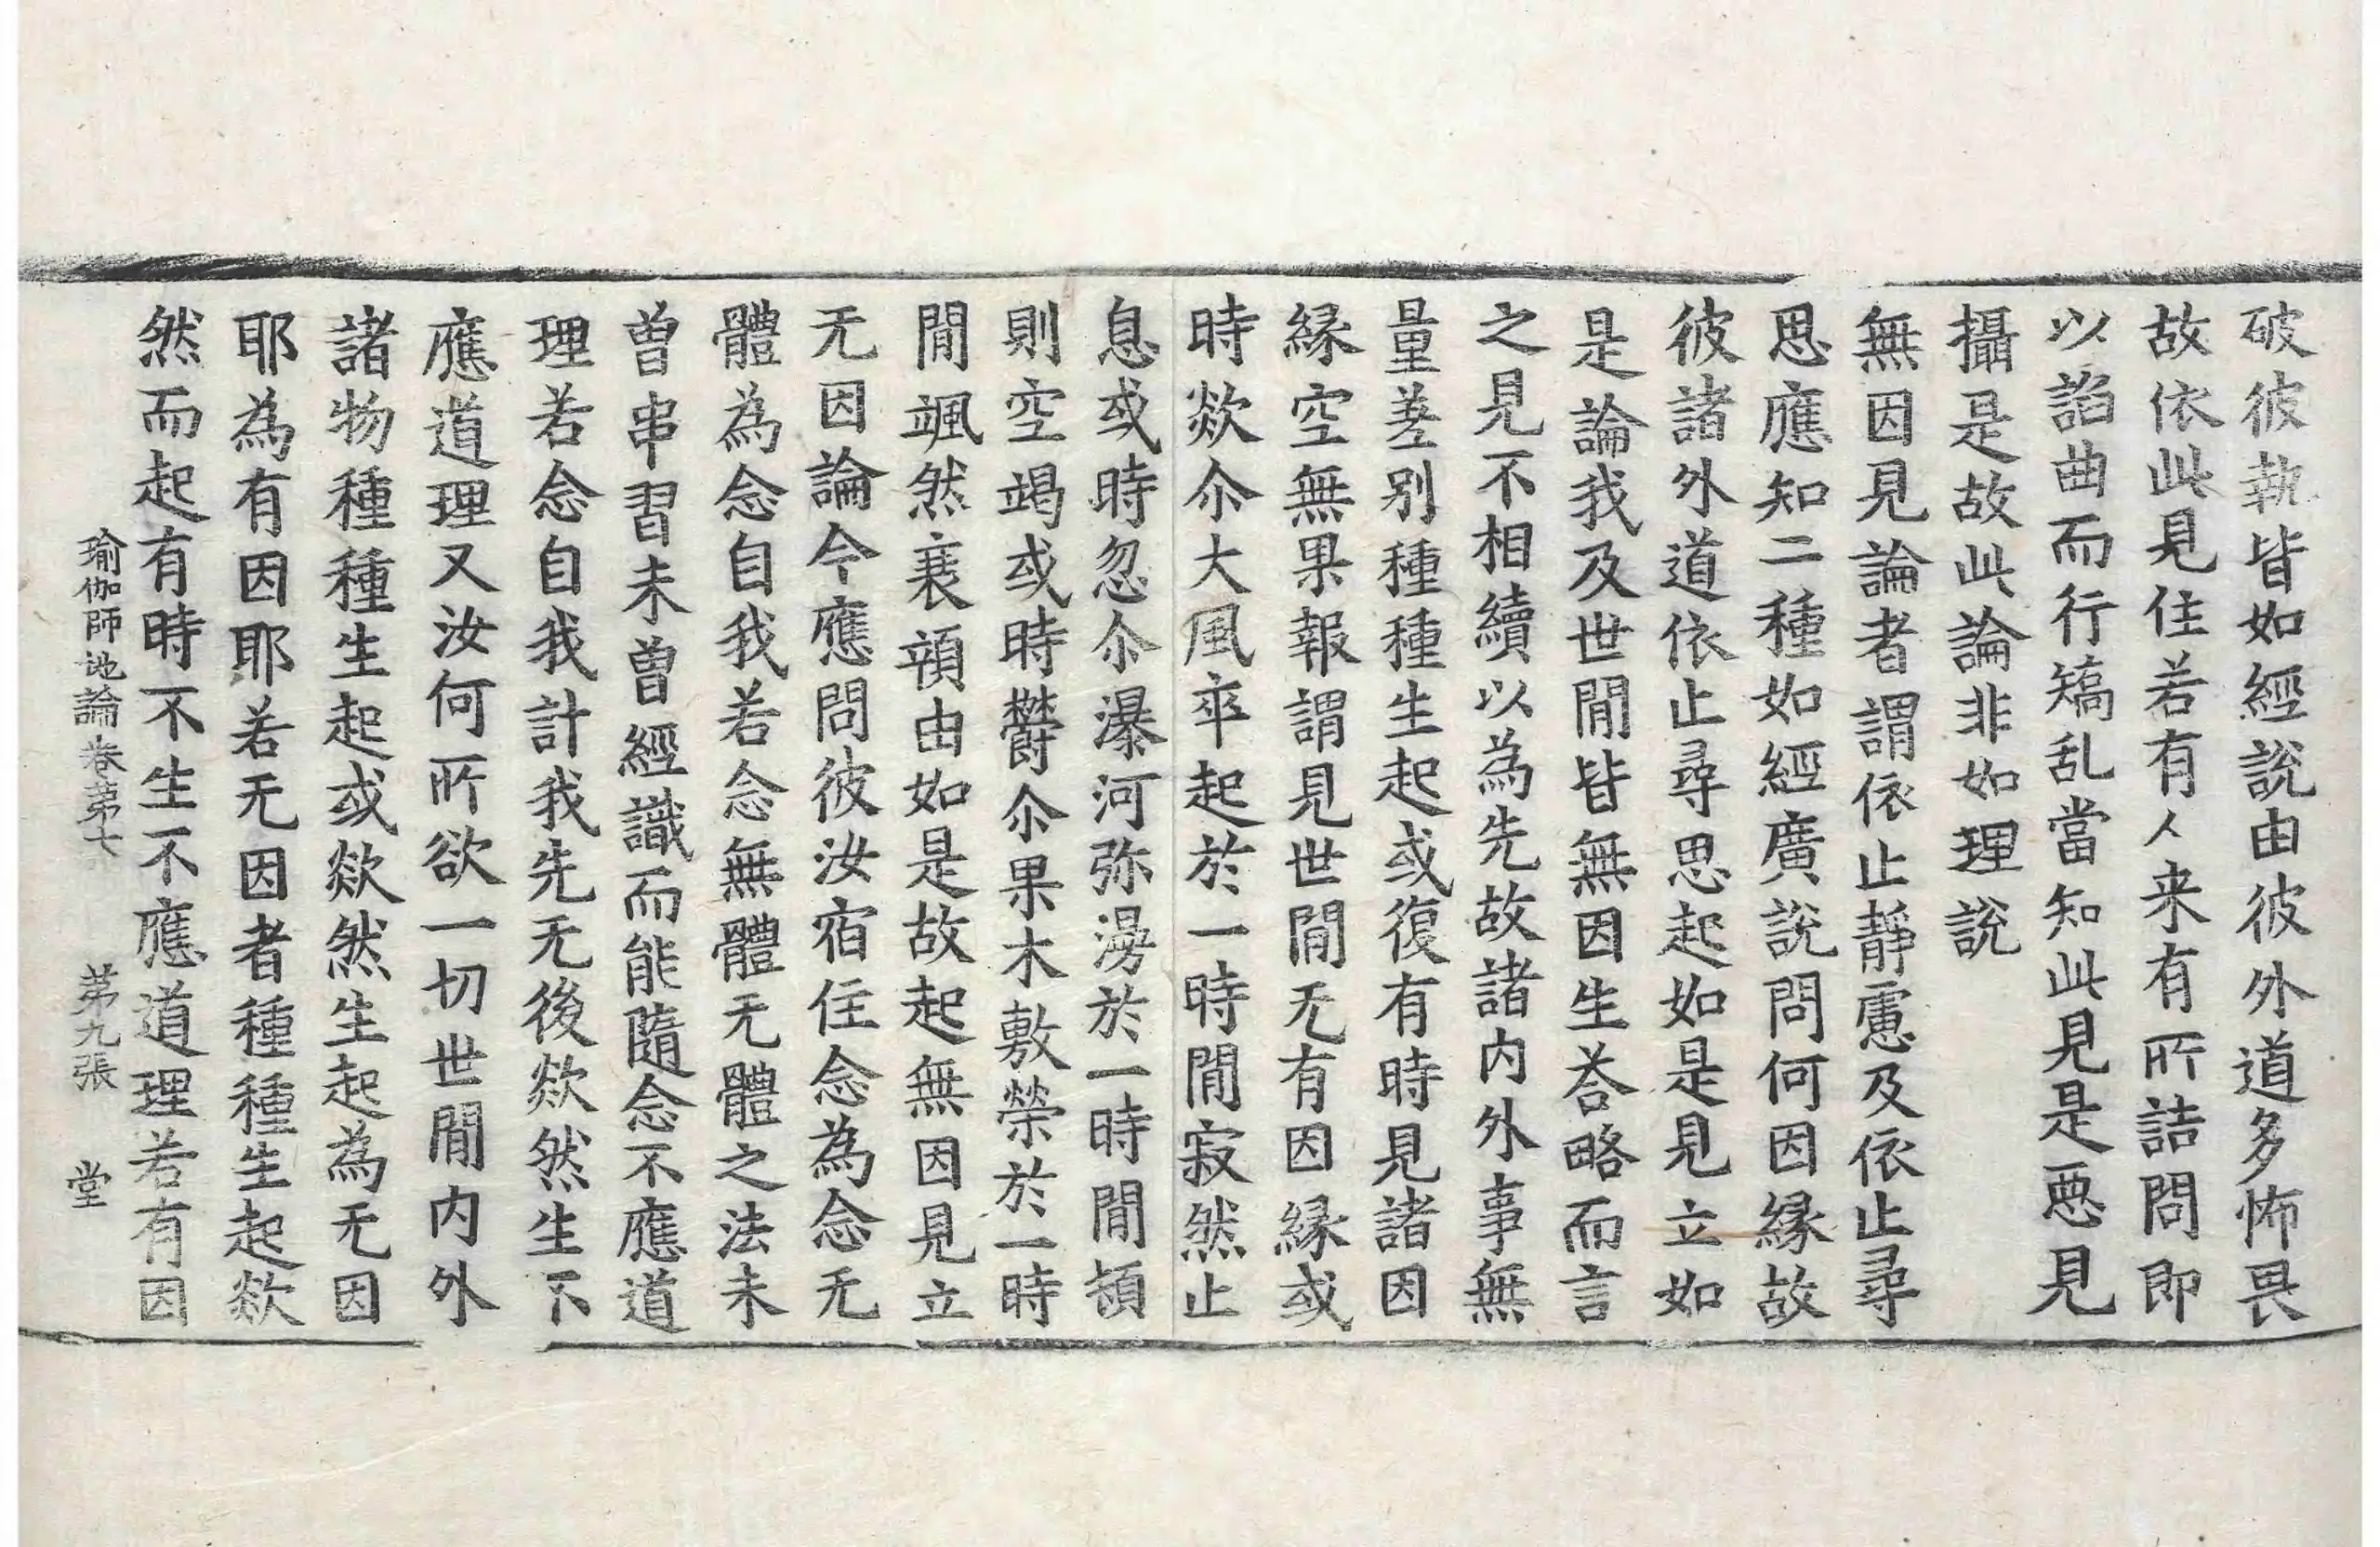 破彼執皆如經說由彼外道多怖畏
故依此見住若有人来有所詰問即
以諂曲而行矯乱當知此見是惡見
攝是故此論非如理說
無因見論者謂依止靜慮及依止尋
思應知二種如經廣說問何因縁故
彼諸外道依止尋思起如是見立如
是論我及世間皆無因生荅略而言
之見不相續以為先故諸内外事無
量差别種種生起或復有時見諸因
縁空無果報謂見世間无有因縁或
時欻尒大風卒起於一時間寂然止
息或時忽尒瀑河弥漫於一時間頓
則空竭或時欝尒果木敷榮於一時
間颯然衰顇由如是故起無因見立
无因論今應問彼汝宿住念為念无
體為念自我若念無體无體之法未
曽串習未曽經識而能隨念不應道
理若念自我計我先无後欻然生不
應道理又汝何所欲一切世間内外
諸物種種生起或欻然生起為无因
耶為有因耶若无因者種種生起欻
然而起有時不生不應道理若有因
瑜伽師地論卷第七 第九張 堂